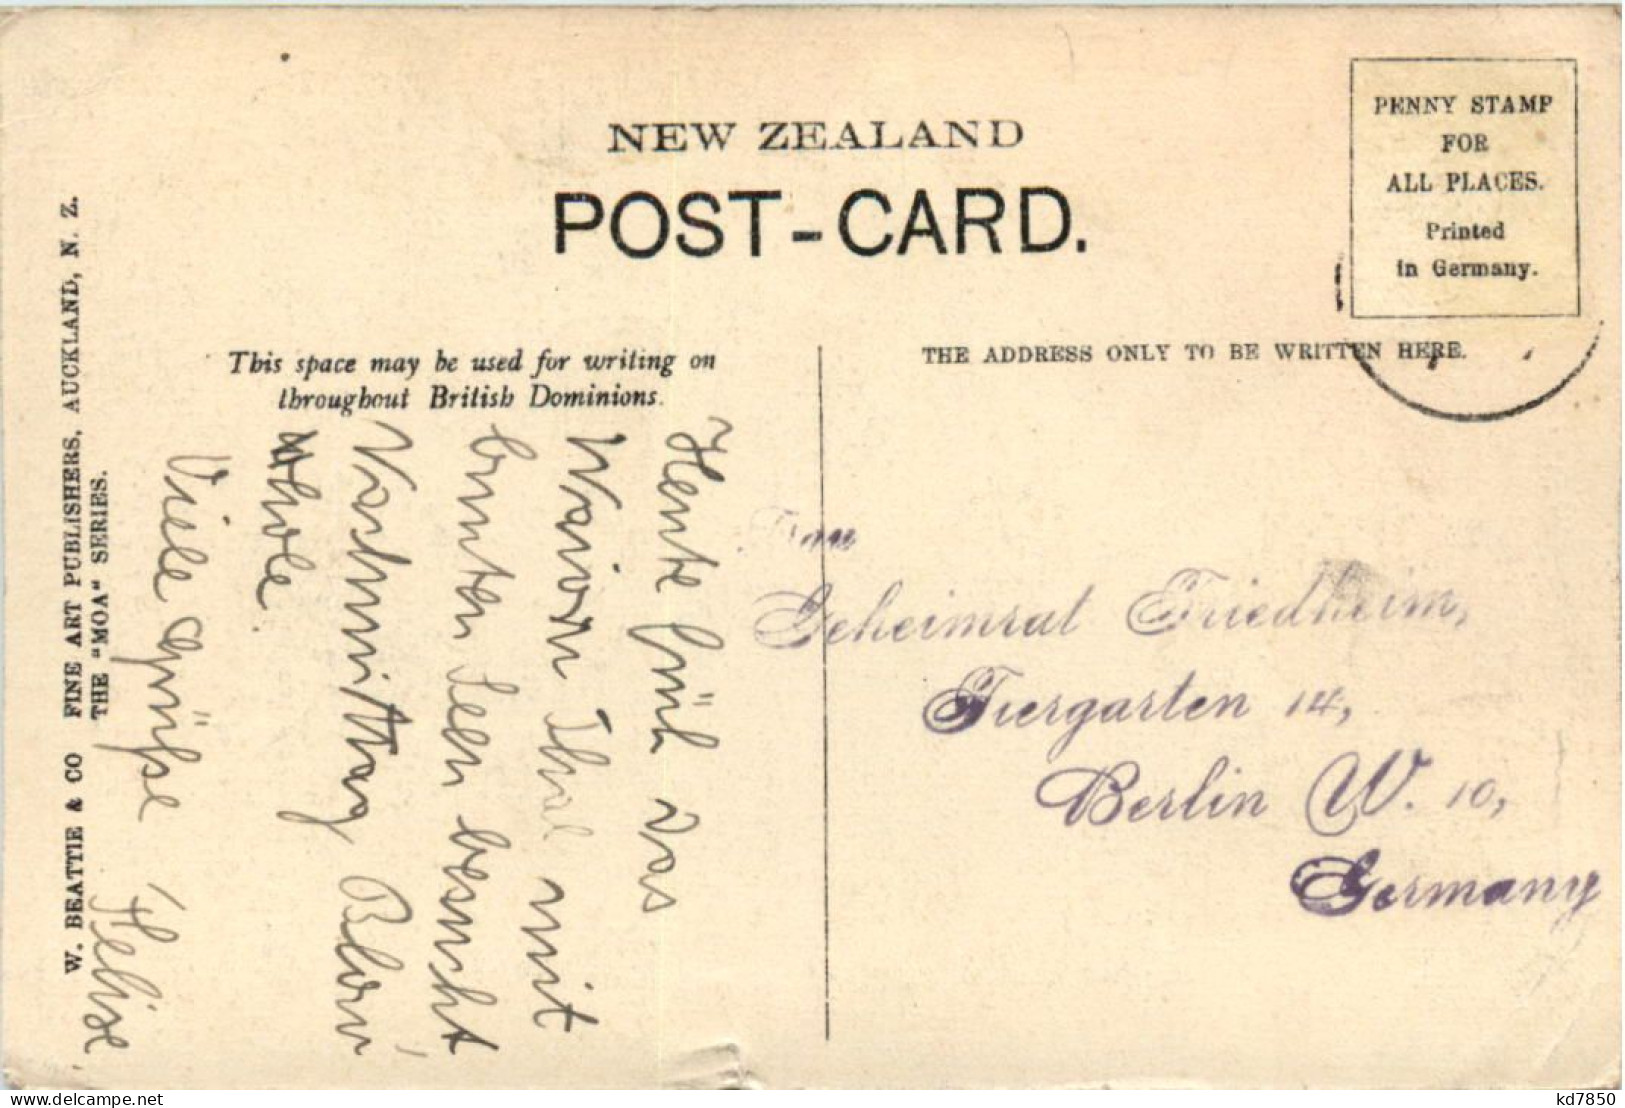 NEW ZEALAND
POST-CARD.
PENNY STAMP
FOR
ALL PLACES.
Printed
in Germany.
W. BEATTIE & CO FINE ART PUBLISHERS, AUCKLAND, N. Z.
THE "MOA" SERIES.
This space may be used for writing on
throughout British Dominions.
THE ADDRESS ONLY TO BE WRITTEN HERE.
Heute früh das
mit
bunten Seen besucht
Nachmittag
Viele Grüße Helise
Frau
Geheimrat Friedheim,
Tiergarten 14,
Berlin W. 10,
Germany
kd7850
delcampe.net